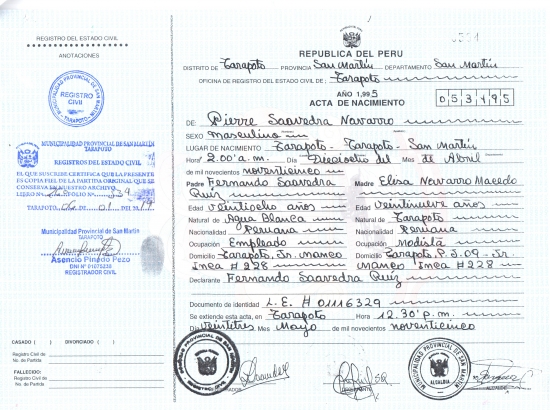 REGISTRO DEL ESTADO CIVIL
ANOTACIONES
REGISTRO CIVIL
TARAPOTO
MUNICIPALIDAD PROVINCIAL DE SAN MARTÍN
TARAPOTO
REGISTROS DEL ESTADO CIVIL
EL QUE SUSCRIBE CERTIFICA QUE LA PRESENTE
ES COPIA FIEL DE LA PARTIDA ORIGINAL QUE SE
CONSERVA EN NUESTRO ARCHIVO
LIBRO FOLIO 334
TARAPOTO, 04 DE 01 DEL 2019
Municipalidad Provincial de San Martín
TARAPOTO
Asencio Pinedo Pezo
DNI N° 01075239
REGISTRADOR CIVIL
CASADO ( ) DIVORCIADO ( )
Registro Civil de
No. de Partida
FALLECIDO:
Registro Civil de
No. de Partida
334
REPUBLICA DEL PERU
DISTRITO DE Tarapoto PROVINCIA San Martín DEPARTAMENTO San Martín
OFICINA DE REGISTRO DEL ESTADO CIVIL DE: Tarapoto
AÑO 1,995
ACTA DE NACIMIENTO 053495
DE: Pierre Saavedra Navarro
SEXO masculino
LUGAR DE NACIMIENTO Tarapoto - Tarapoto - San Martín
Hora 2.00 a.m. Día Dieciocho del Mes de Abril
de mil novecientos noventicinco
Padre Fernando Saavedra Ruiz
Madre Elisa Navarro Macedo
Edad veintiocho años
Edad veintinueve años
Natural de Agua Blanca
Natural de Tarapoto
Nacionalidad Peruana
Nacionalidad Peruana
Ocupación Empleado
Ocupación modista
Domicilio Tarapoto, Jr. manco Inca # 228
Domicilio Tarapoto, P.J. 09 - Jr. manco Inca # 228
Declarante Fernando Saavedra Ruiz
Documento de identidad L.E. # 01116329
Se extiende esta acta, en Tarapoto Hora 12.30 p.m.
Día veintitres Mes Mayo de mil novecientos noventicinco
MUNICIPALIDAD PROVINCIAL DE SAN MARTIN
ALCALDIA